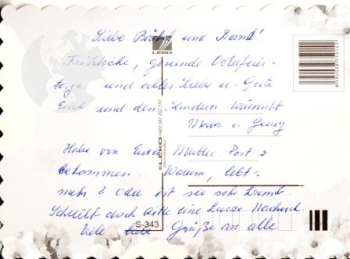 Liebe und Bernd"
Fröhliche, gesunde Osterfeier-
tage und alles Liebe u. Gute
Euch und den Kindern wünscht
u. Georg
Habe von Eurer Mutter Post
bekommen. Warum, lebt
mehr? Oder ist sie sehr krank
Schreibt doch bitte eine kurze Nachricht
Viele Grüße an alle
LEIKO
S-343